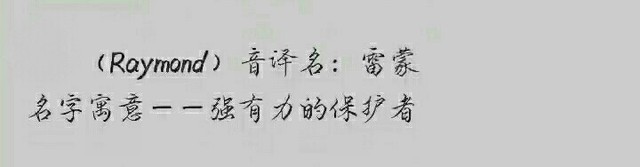 （Raymond）音译名：雷蒙
名字寓意－－强有力的保护者